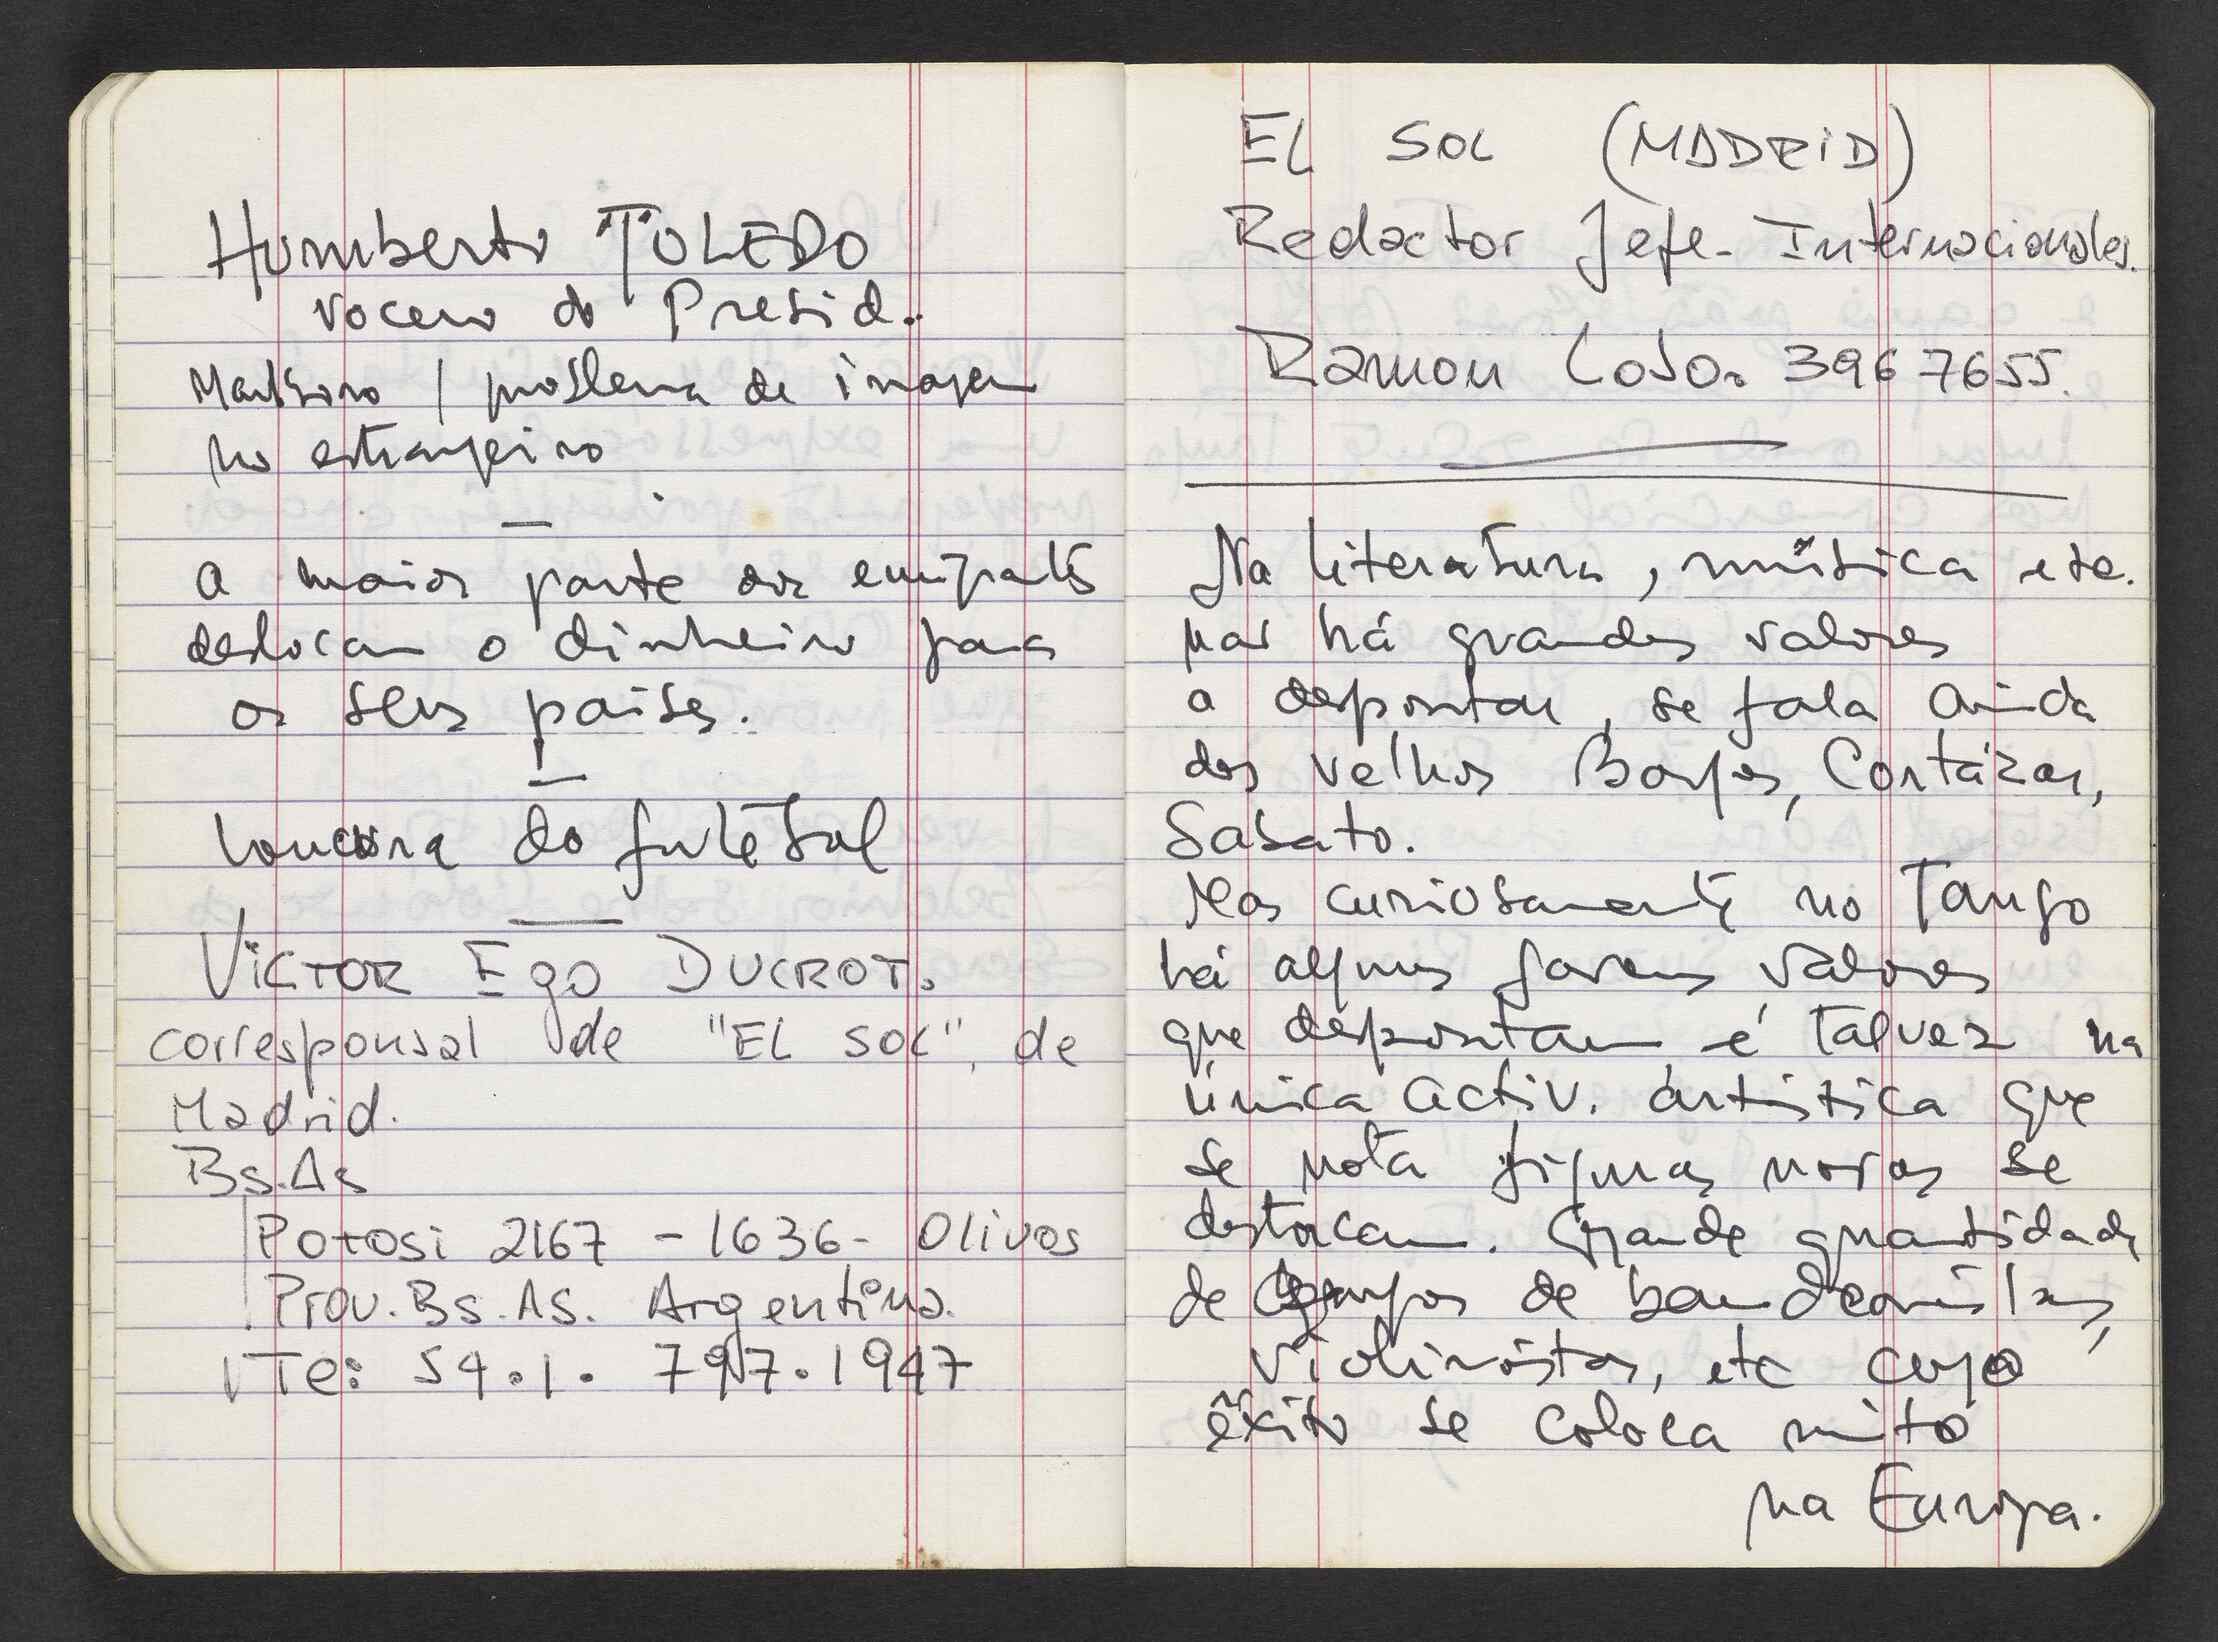 Humberto TOLEDO
vocero do Presid.
problema de imagem
no estrangeiro
a maior parte dos emigrants
deslocam o dinheiro para
os seus paises.
loucura do futebol
VICTOR EGO DUCROT.
corresponsal de "EL SOL", de
Madrid.
Bs.As
Potosi 2167 - 1636 - Olivos
Prov. Bs. As. Argentina.
Te: 54.1. 797.1947
EL SOL (MADRID)
Redactor Jefe - Internacionales.
Ramon 3967655.
Na literatura, música etc.
não há grandes valores
a despontar, se fala ainda
dos velhos Borges, Cortázar,
Sabato.
Mas curiosamente no Tango
há alguns jovens valores
que despontam é talvez na
única activ. artística que
se nota figuras novas se
destacam. Grande quantidade
de grupos de
violinistas, etc cujo
êxito se coloca muito
na Europa.